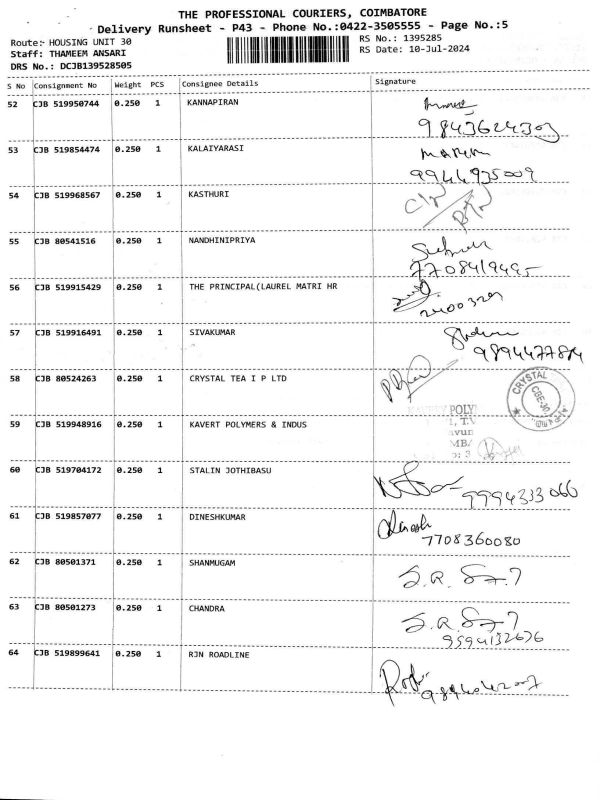 THE PROFESSIONAL COURIERS, COIMBATORE
Delivery Runsheet - P43 - Phone No.:0422-3505555 - Page No.:5
Route: HOUSING UNIT 30
RS No.: 1395285
Staff: THAMEEM ANSARI
RS Date: 10-Jul-2024
DRS No.: DCJB139528505
S No Consignment No Weight PCS Consignee Details Signature
52 CJB 519950744 0.250 1 KANNAPIRAN
9843624303
53 CJB 519854474 0.250 1 KALAIYARASI
9944935009
54 CJB 519968567 0.250 1 KASTHURI
55 CJB 80541516 0.250 1 NANDHINIPRIYA
7708419495
56 CJB 519915429 0.250 1 THE PRINCIPAL(LAUREL MATRI HR
57 CJB 519916491 0.250 1 SIVAKUMAR
58 CJB 80524263 0.250 1 CRYSTAL TEA I P LTD
CRYSTAL
CBE-30
59 CJB 519948916 0.250 1 KAVERT POLYMERS & INDUS
60 CJB 519704172 0.250 1 STALIN JOTHIBASU
9994333066
61 CJB 519857077 0.250 1 DINESHKUMAR
Dinesh
7708360080
62 CJB 80501371 0.250 1 SHANMUGAM
63 CJB 80501273 0.250 1 CHANDRA
9594132676
64 CJB 519899641 0.250 1 RJN ROADLINE